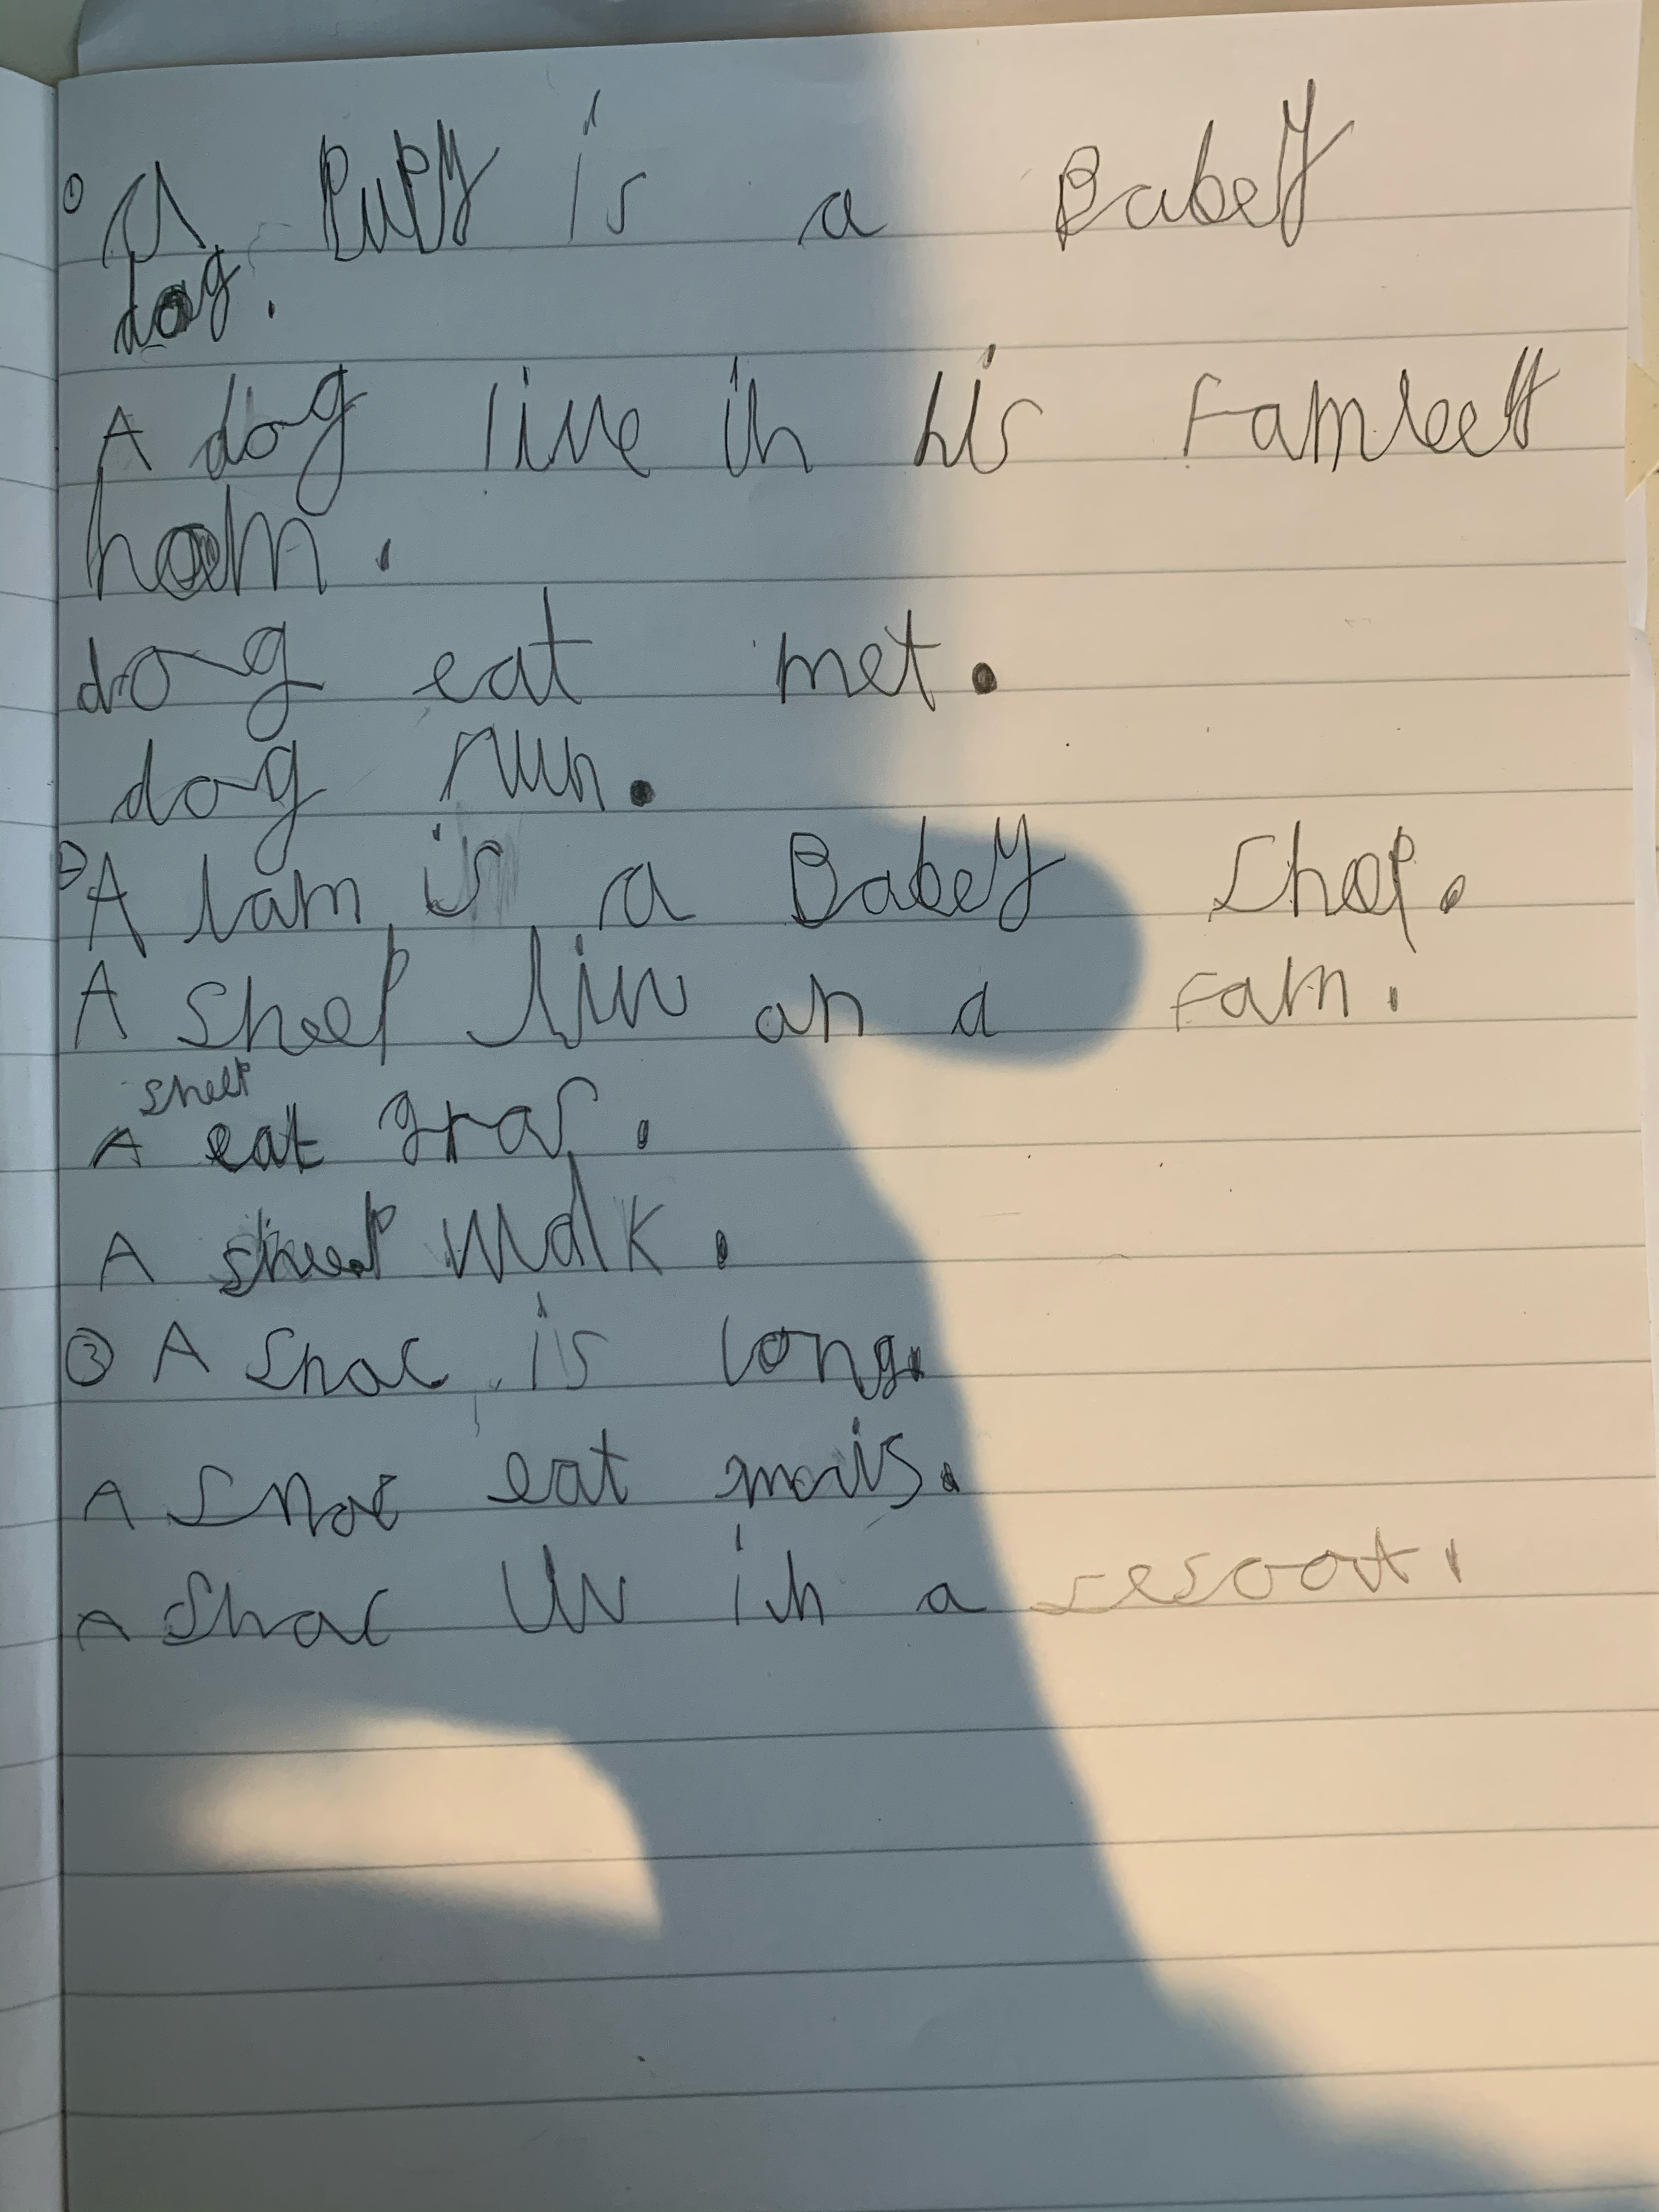 ① A Pupy is a Babey
dog.
A dog live in his Famleey
hoem.
dog eat met.
dog run.
② A lam is a Babey Shep.
A Sheep liv on a Farm.
A sheep eat gras.
A sheep walk.
③ A Snac is long.
A Snac eat mais.
A Snac liv in a